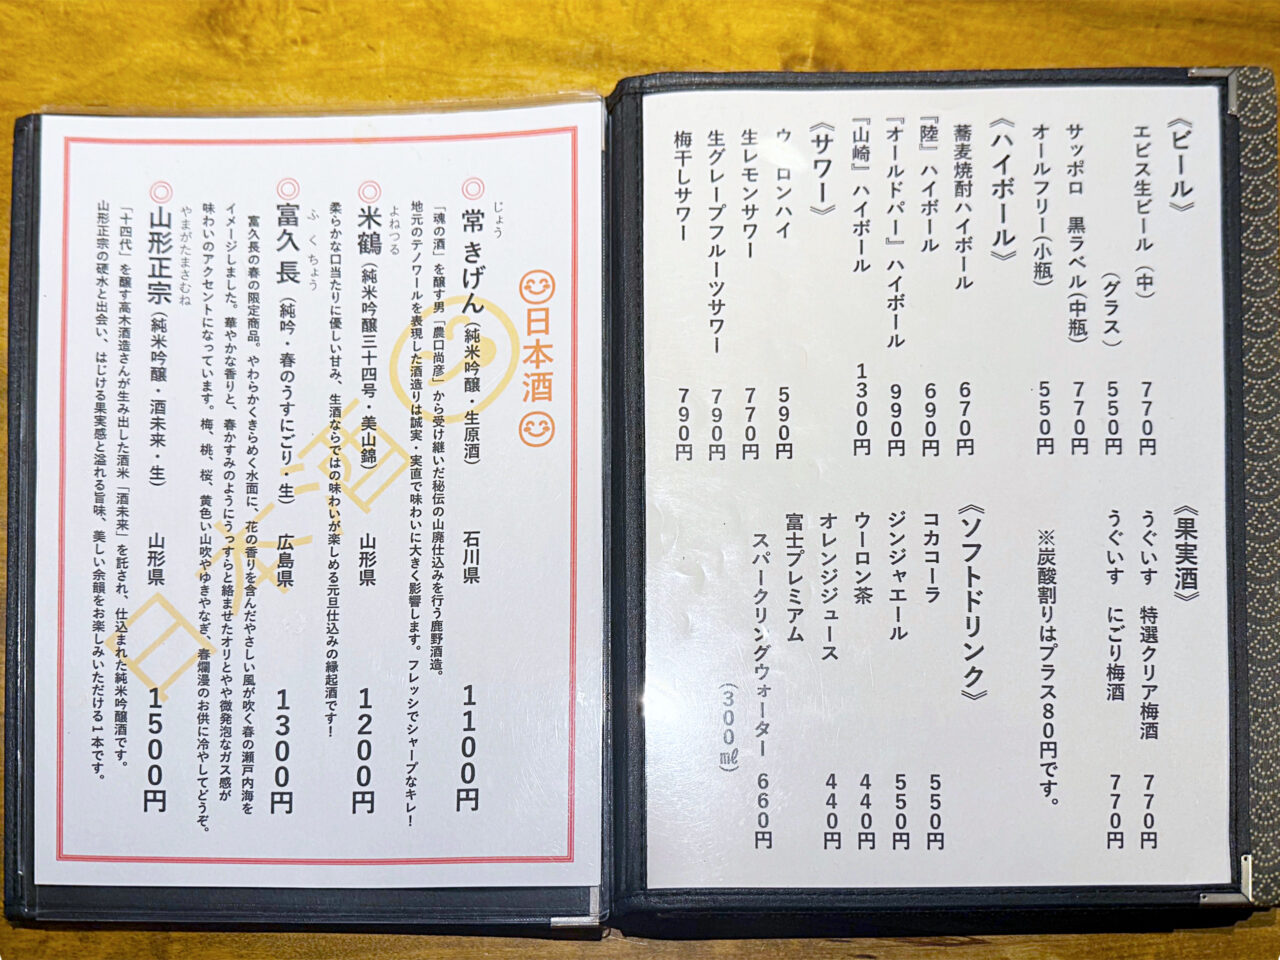 《ビール》
エビス生ビール（中）　770円
（グラス）　550円
サッポロ　黒ラベル（中瓶）　770円
オールフリー（小瓶）　550円
《ハイボール》
蕎麦焼酎ハイボール　670円
『陸』ハイボール　690円
『オールドパー』ハイボール　990円
『山崎』ハイボール　1300円
《サワー》
ウーロンハイ　590円
生レモンサワー　770円
生グレープフルーツサワー　790円
梅干しサワー　790円
《果実酒》
うぐいす　特選クリア梅酒　770円
うぐいす　にごり梅酒　770円
※炭酸割りはプラス80円です。
《ソフトドリンク》
コカコーラ　550円
ジンジャエール　550円
ウーロン茶　440円
オレンジジュース　440円
富士プレミアム
スパークリングウォーター　660円
（300㎖）
日本酒
じょう
◎常きげん（純米吟醸・生原酒）　石川県　1100円
「魂の酒」を醸す男「農口尚彦」から受け継いだ秘伝の山廃仕込みを行う鹿野酒造。
地元のテノワールを表現した酒造りは誠実・実直で味わいに大きく影響します。フレッシでシャープなキレ！
よねつる
◎米鶴（純米吟醸三十四号・美山錦）　山形県　1200円
柔らかな口当たりに優しい甘み、生酒ならではの味わいが楽しめる元旦仕込みの縁起酒です！
ふくちょう
◎富久長（純吟・春のうすにごり・生）　広島県　1300円
富久長の春の限定商品。やわらかくきらめく水面に、花の香りを含んだやさしい風が吹く春の瀬戸内海を
イメージしました。華やかな香りと、春かすみのようにうっすらと絡ませたオリとやや微発泡なガス感が
味わいのアクセントになっています。梅、桃、桜、黄色い山吹やゆきやなぎ、春爛漫のお供に冷やしてどうぞ。
やまがたまさむね
◎山形正宗（純米吟醸・酒未来・生）　山形県　1500円
「十四代」を醸す高木酒造さんが生み出した酒米「酒未来」を託され、仕込まれた純米吟醸酒です。
山形正宗の硬水と出会い、はじける果実感と溢れる旨味、美しい余韻をお楽しみいただける1本です。
日本酒